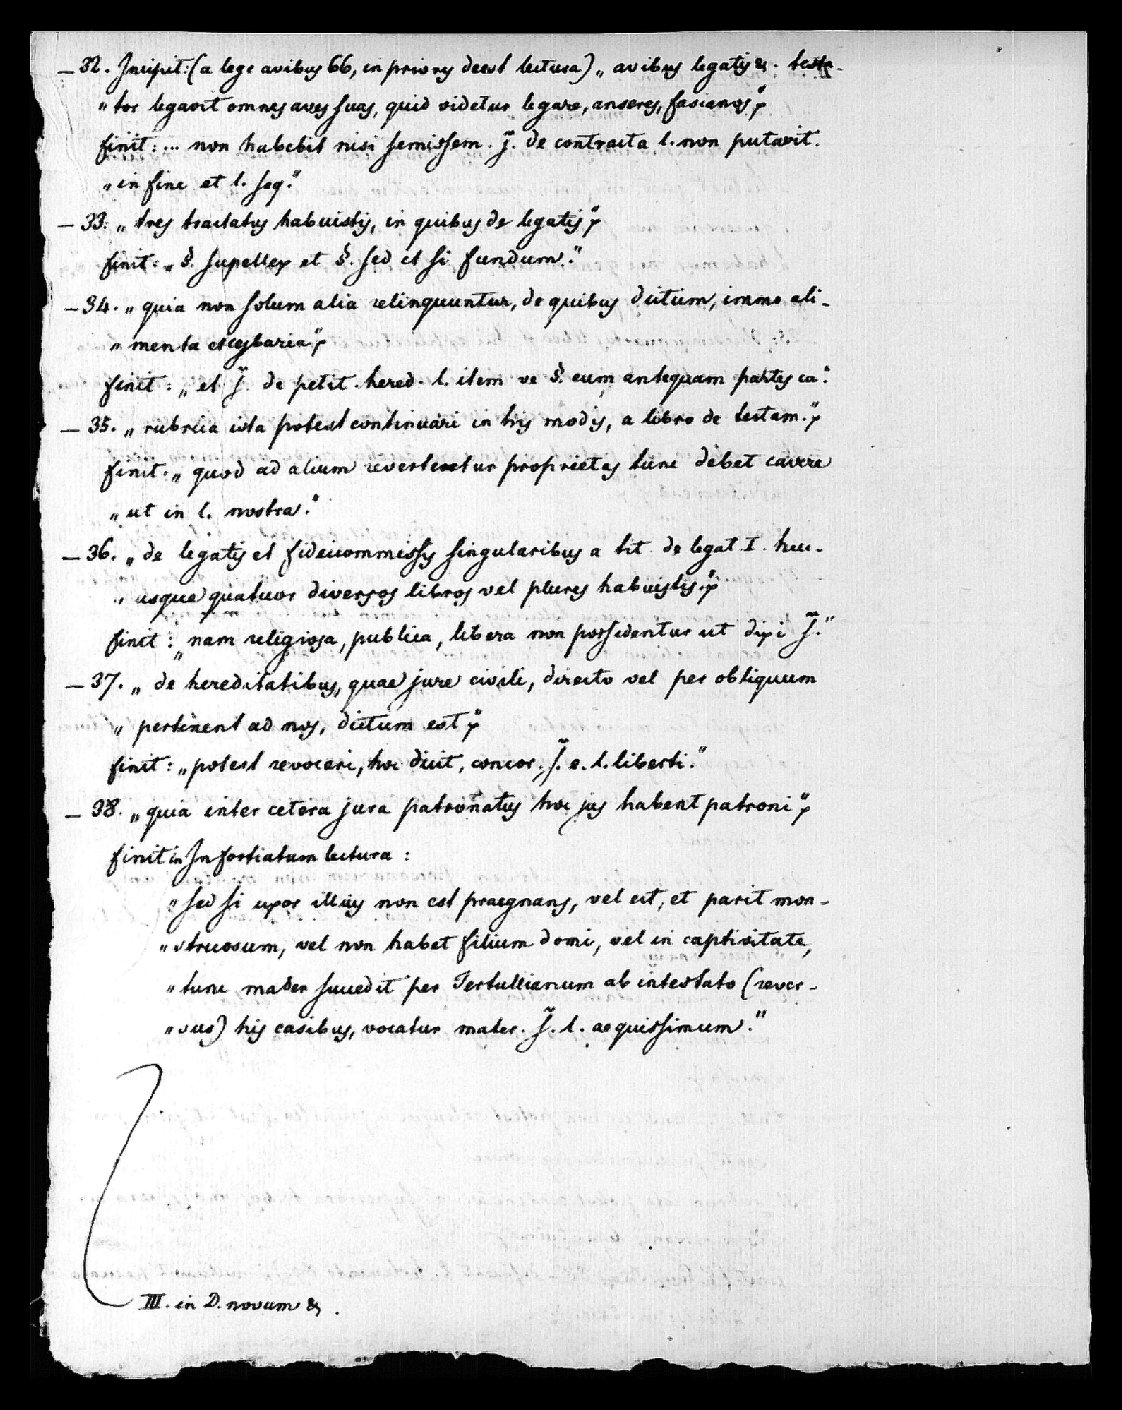 — 32. Incipit: (a lege avibus 66, in priorys deest lectura) „avibus legatis &. testa-
„tor legavit omnes aves suas, quid videtur legare, anseres, fascianos;"
finit: ... non habebit nisi semissem. J̃. de contracta l. non putavit.
„in fine et l. seq."
— 33: „tres tractatus habuistis, in quibus de legatis;"
finit: „§. supellex et §. sed et si fundum."
— 34. „quia non solum alia relinquuntur, de quibus dictum, immo ali-
„menta et cybaria;"
finit: „et J̃. de petit. hered. l. item ve §. eum, antequam partes ca."
— 35. „rubrica ista potest continuari in tris modis, a libro de testam."
finit: „quod ad alium reverteretur proprietas tunc debet cavere
„ut in l. nostra."
— 36. „de legatis et fideicommissis singularibus a tit. de legat. I. huc-
„usque quatuor diversos libros vel plures habuistis;"
finit: „nam religiosa, publica, libera non possidentur ut dixi J̃."
— 37. „de hereditatibus, quae jure civili, directo vel per obliquum
„pertinent ad nos, dictum est;"
finit: „potest revocari, hoc dicit, concor. J̃. e. l. liberti."
— 38. „quia inter cetera jura patronatus hoc jus habent patroni;"
finit in Infortiatum lectura:
„sed si uxor illius non est praegnans, vel est, et parit mon-
„struosum, vel non habet filium domi, vel in captivitate,
„tunc mater succedit per Tertullianum ab intestato (rever-
„sus) his casibus, vocatur mater. J̃. l. aequissimum."
III. in D. novum &.